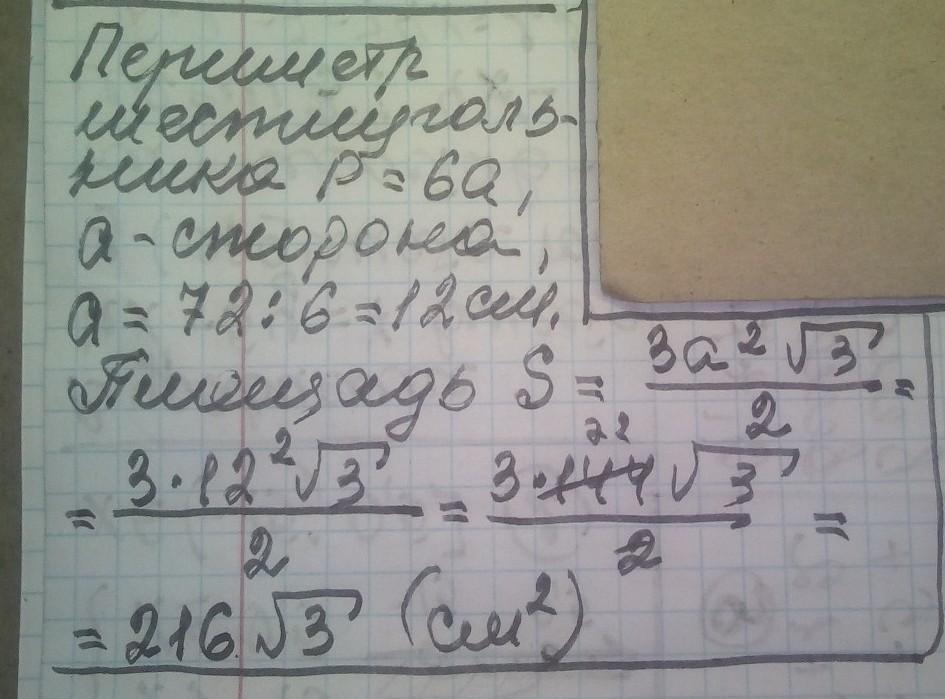 Периметр
шестиуголь-
ника P = 6a,
a - сторона,
a = 72 : 6 = 12 см.
Площадь S = 3a²√3 / 2 =
= 3·12²√3 / 2 = 3·144√3 / 2 =
72
= 216√3 (см²)